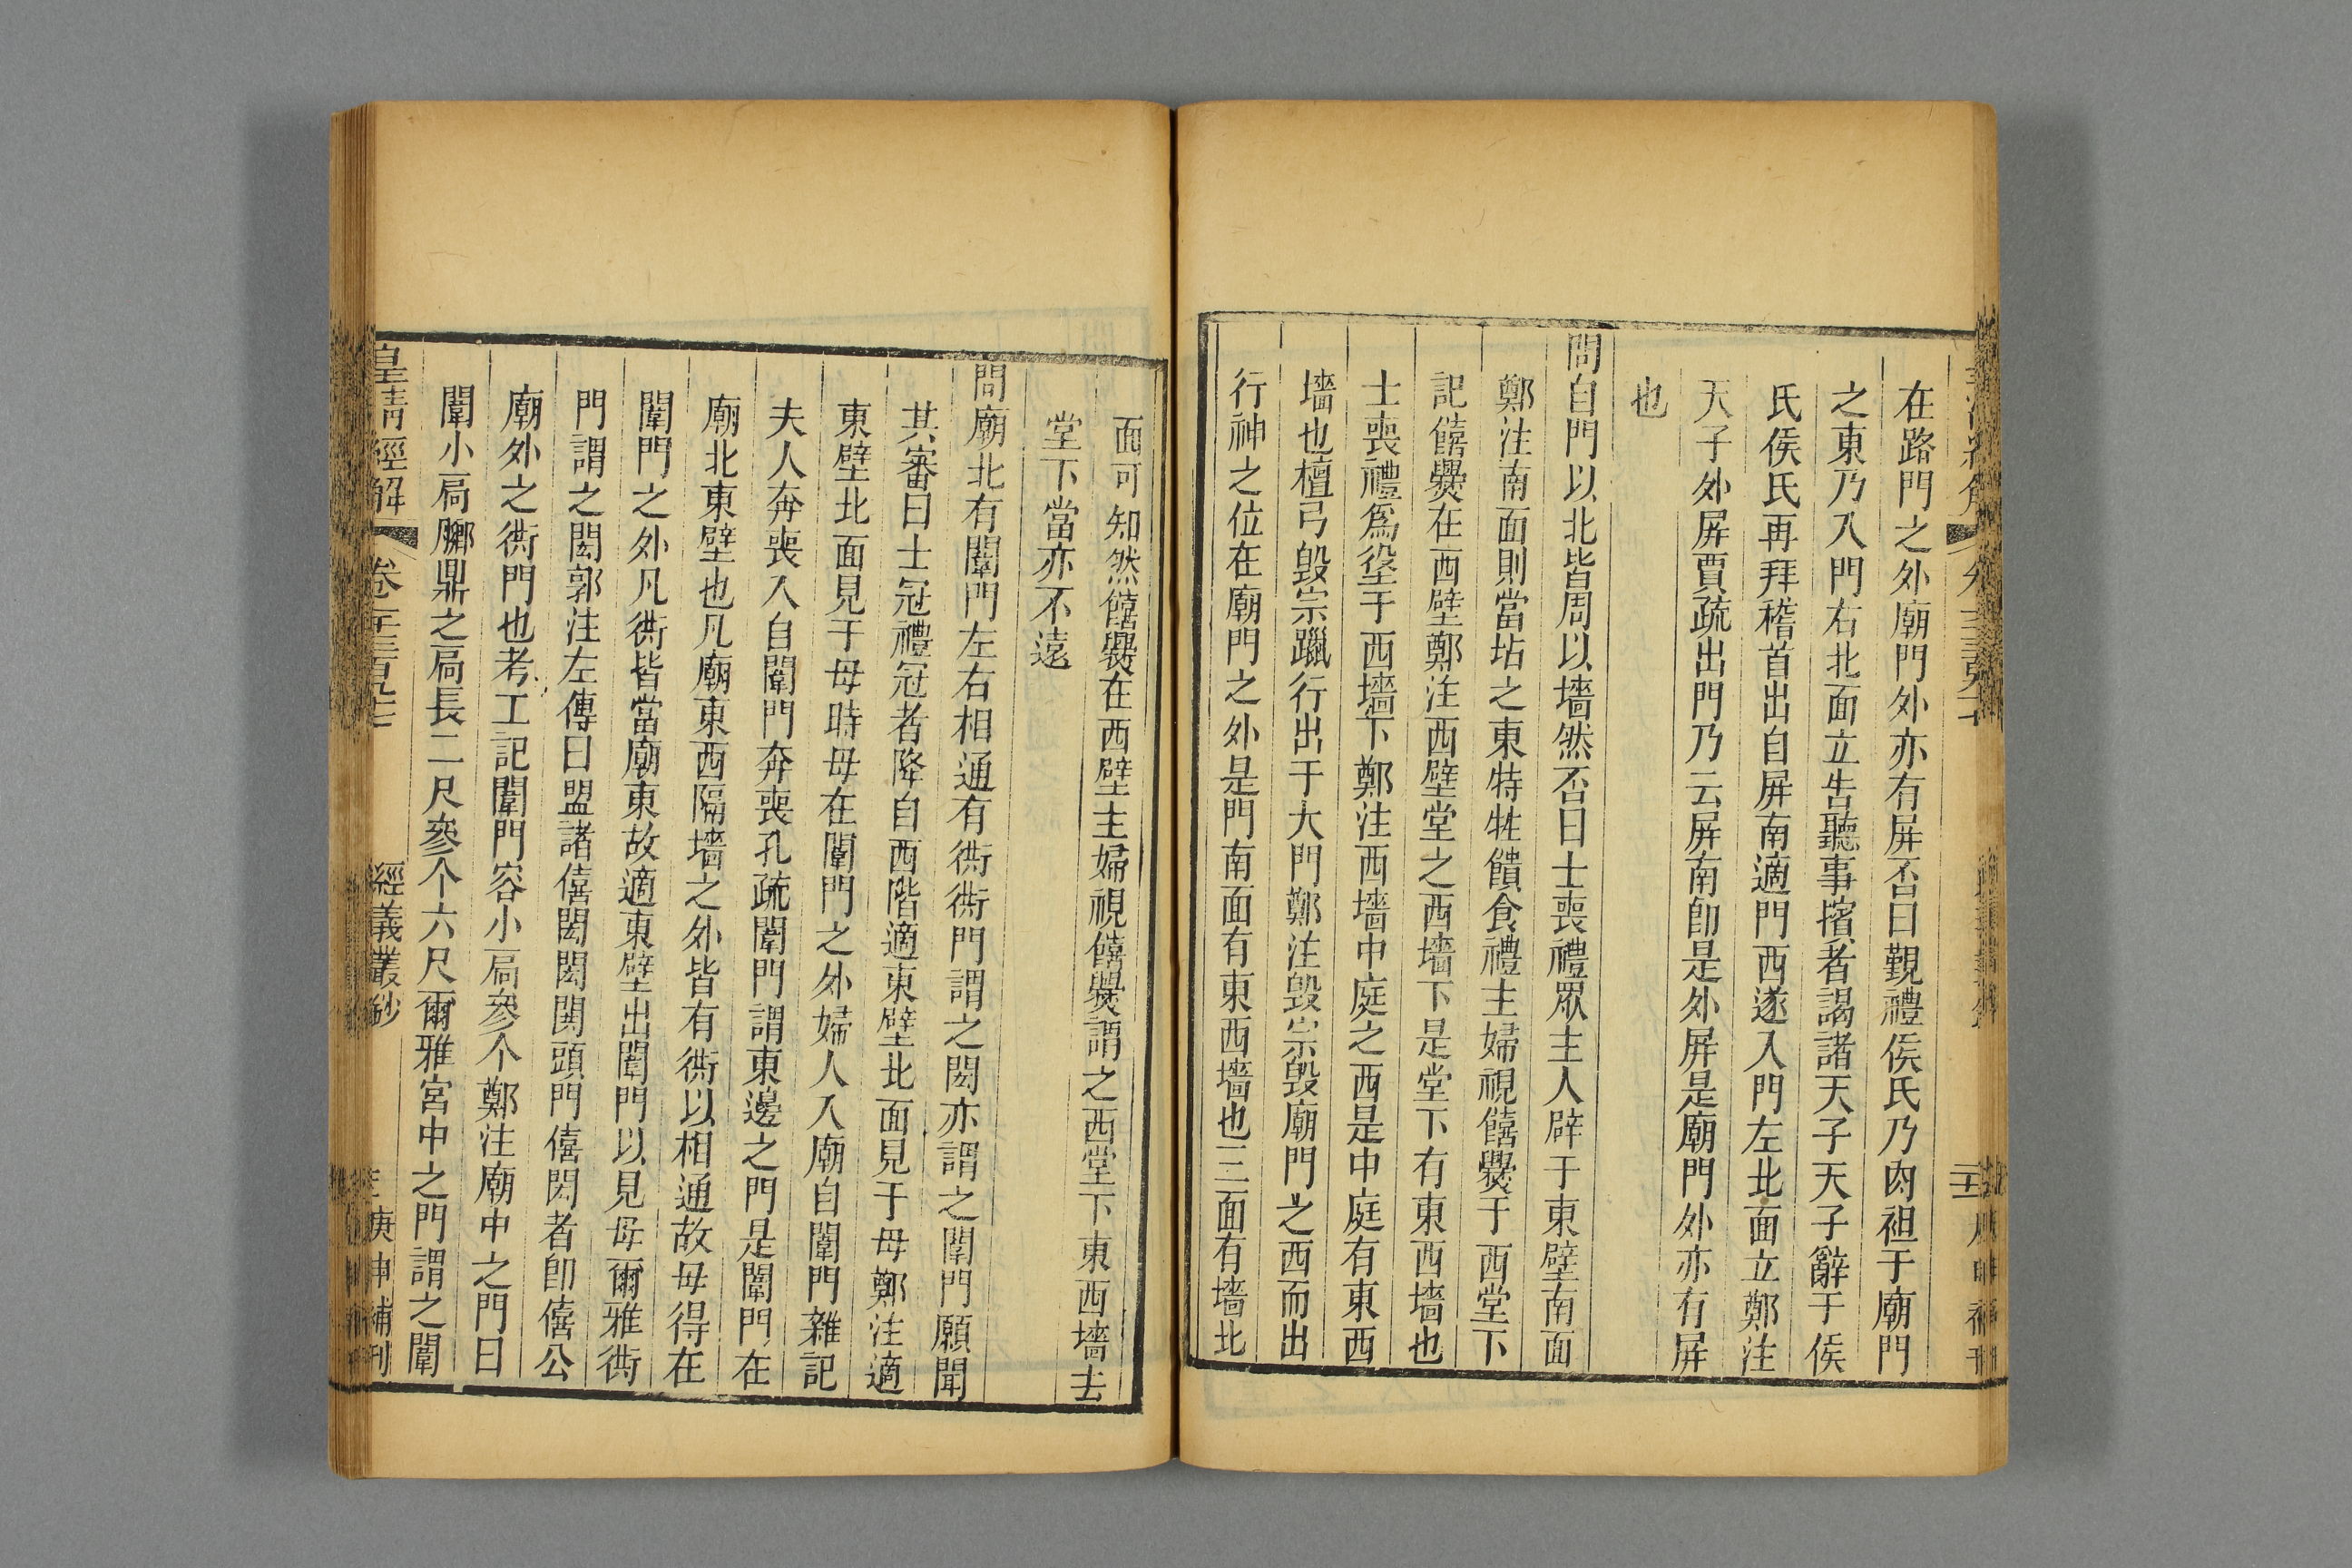 在路門之外廟門外亦有屏否曰覲禮侯氏乃肉袒于廟門
之東乃入門右北面立告聽事擯者謁諸天子天子辭于侯
氏侯氏再拜稽首出自屏南適門西遂入門左北面立鄭注
天子外屏賈疏出門乃云屏南卽是外屏是廟門外亦有屏
也
問自門以北皆周以墻然否曰士喪禮眾主人辟于東壁南面
鄭注南面則當坫之東特牲饋食禮主婦視饎爨于西堂下
記饎爨在西壁鄭注西壁堂之西墻下是堂下有東西墻也
士喪禮爲垼于西墻下鄭注西墻中庭之西是中庭有東西
墻也檀弓毀宗躐行出于大門鄭注毀宗毀廟門之西而出
行神之位在廟門之外是門南面有東西墻也三面有墻北
面可知然饎爨在西壁主婦視饎爨謂之西堂下東西墻去
堂下當亦不遠
問廟北有闈門左右相通有衖衖門謂之閎亦謂之闈門願聞
其審曰士冠禮冠者降自西階適東壁北面見于母鄭注適
東壁北面見于母時母在闈門之外婦人入廟自闈門雜記
夫人奔喪入自闈門奔喪孔疏闈門謂東邊之門是闈門在
廟北東壁也凡廟東西隔墻之外皆有衖以相通故母得在
闈門之外凡衖皆當廟東故適東壁出闈門以見母爾雅衖
門謂之閎郭注左傳曰盟諸僖閎閎閈頭門僖閎者卽僖公
廟外之衖門也考工記闈門容小扃參个鄭注廟中之門曰
闈小扃膷鼎之扃長二尺參个六尺爾雅宮中之門謂之闈
皇清經解
卷一千三百九十七
經義叢鈔
庚申補刊